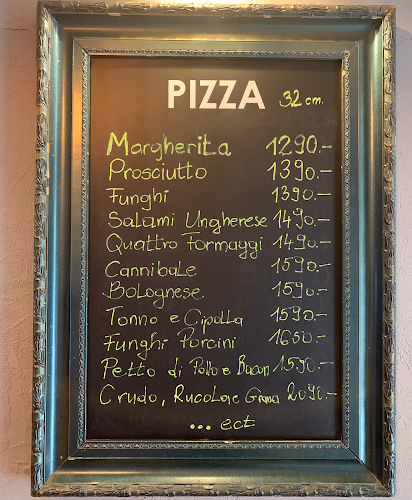 PIZZA 32 cm.
Margherita 1290.-
Prosciutto 1390.-
Funghi 1390.-
Salami Ungherese 1490.-
Quattro Formaggi 1490.-
Cannibale 1590.-
Bolognese. 1590.-
Tonno e Cipolla 1590.-
Funghi Porcini 1650.-
Petto di Pollo e Bacon 1590.-
Crudo, Rucola e Grana 2090.-
... ect